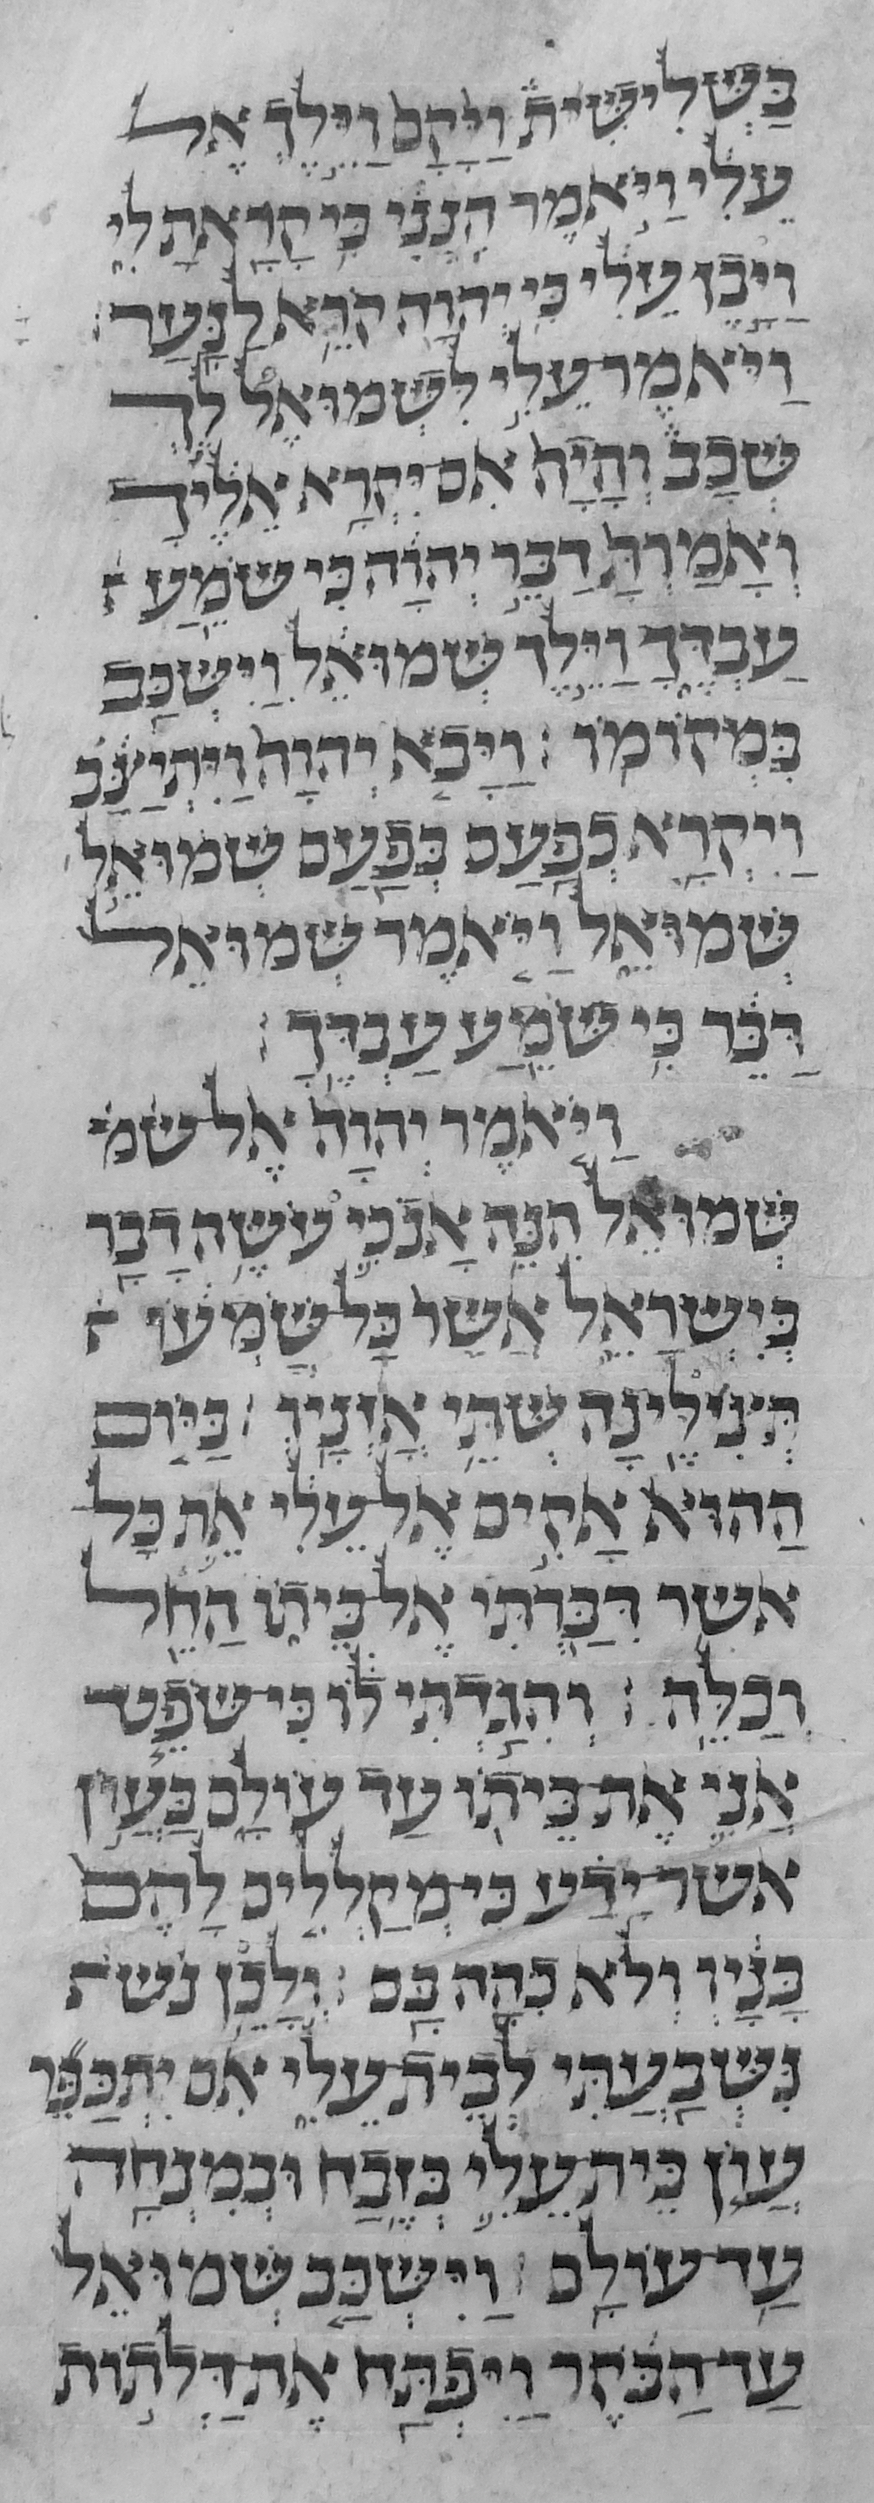 בַּשְּׁלִישִׁית וַיָּקָם וַיֵּלֶךְ אֶל
עֵלִי וַיֹּאמֶר הִנְנִי כִּי קָרָאתָ לִי
וַיָּבֶן עֵלִי כִּי יְהוָה קֹרֵא לַנָּעַר :
וַיֹּאמֶר עֵלִי לִשְׁמוּאֵל לֵךְ
שְׁכָב וְהָיָה אִם יִקְרָא אֵלֶיךָ
וְאָמַרְתָּ דַּבֵּר יְהוָה כִּי שֹׁמֵעַ
עַבְדֶּךָ וַיֵּלֶךְ שְׁמוּאֵל וַיִּשְׁכַּב
בִּמְקוֹמוֹ : וַיָּבֹא יְהוָה וַיִּתְיַצַּב
וַיִּקְרָא כְפַעַם בְּפַעַם שְׁמוּאֵל
שְׁמוּאֵל וַיֹּאמֶר שְׁמוּאֵל
דַּבֵּר כִּי שֹׁמֵעַ עַבְדֶּךָ :
וַיֹּאמֶר יְהוָה אֶל שמ
שְׁמוּאֵל הִנֵּה אָנֹכִי עֹשֶׂה דָבָר
בְּיִשְׂרָאֵל אֲשֶׁר כָּל שֹׁמְעוֹ
תְּצִלֶּינָה שְׁתֵּי אָזְנָיו : בַּיּוֹם
הַהוּא אָקִים אֶל עֵלִי אֵת כָּל
אשר דִּבַּרְתִּי אֶל בֵּיתוֹ הָחֵל
וְכַלֵּה : וְהִגַּדְתִּי לוֹ כִּי שֹׁפֵט
אֲנִי אֶת בֵּיתוֹ עַד עוֹלָם בַּעֲוֹן
אשר יָדַע כִּי מְקַלְלִים לָהֶם
בָּנָיו וְלֹא כִהָה בָּם : וְלָכֵן נשת
נִשְׁבַּעְתִּי לְבֵית עֵלִי אִם יִתְכַּפֵּר
עֲוֹן בֵּית עֵלִי בְּזֶבַח וּבְמִנְחָה
עַד עוֹלָם : וַיִּשְׁכַּב שְׁמוּאֵל
עַד הַבֹּקֶר וַיִּפְתַּח אֶת דַּלְתוֹת